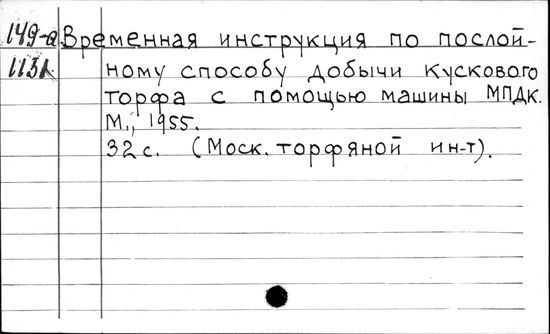 149-а Временная инструкция по послой-
1131 ному способу добычи кускового
торфа с помощью машины МПДК.
М., 1955.
32 с. (Моск. торфяной ин-т).